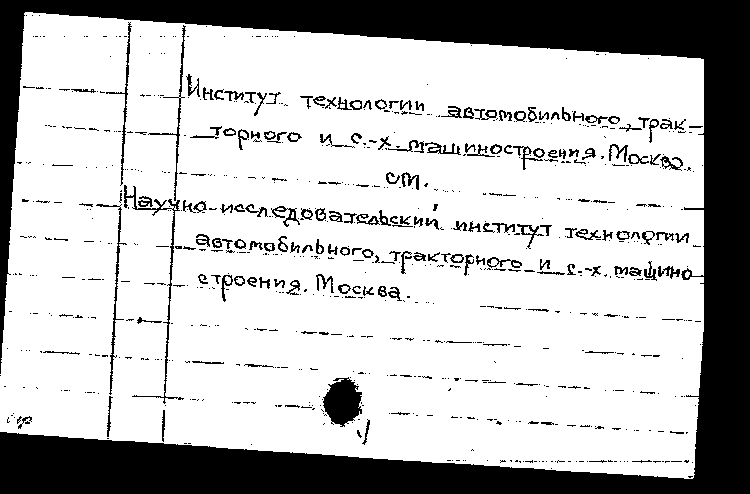 Институт технологии автомобильного, трак-
торного и с.-х. машиностроения. Москва.
см.
Научно-исследовательский институт технологии
автомобильного, тракторного и с.-х. машино
строения. Москва.